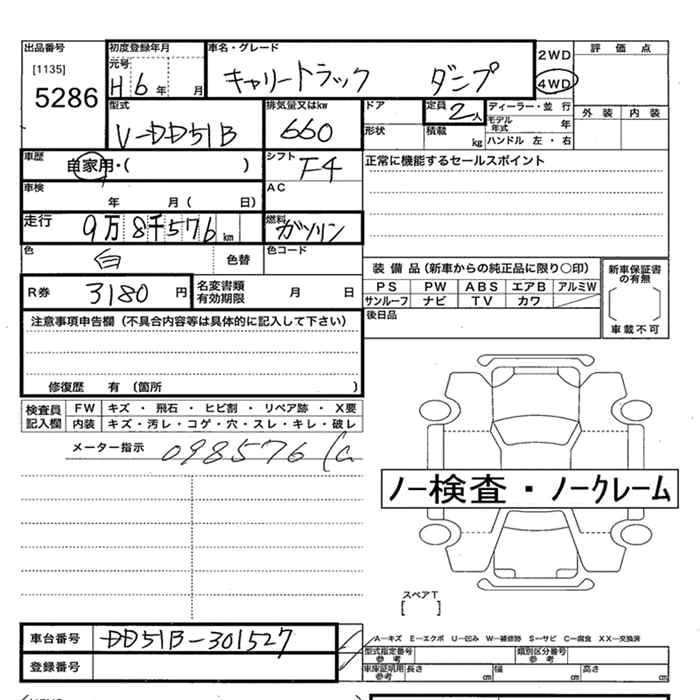 出品番号 初度登録年月 車名・グレード 2WD 評価点
[1135] 元号 キャリートラック ダンプ 4WD
5286 H 6 年 月 外装 内装
型式 排気量又はkw ドア 定員 2人 ディーラー・並行
V-DD51B 660 形状 積載 kg モデル年式 年
ハンドル 左・右
車歴 自家用・( ) シフト F4 正常に機能するセールスポイント
車検 年 月( 日) AC
走行 9万8千576km 燃料 ガソリン
色 白 色替 色コード
R券 3180円 名変書類有効期限 月 日
装備品(新車からの純正品に限り○印) 新車保証書の有無
PS PW ABS エアB アルミW
サンルーフ ナビ TV カワ 車載不可
後日品
注意事項申告欄(不具合内容等は具体的に記入して下さい)
修復歴 有 (箇所 )
検査員記入欄 FW キズ・飛石・ヒビ割・リペア跡・X要
内装 キズ・汚レ・コゲ・穴・スレ・キレ・破レ
メーター指示 098576
ノー検査・ノークレーム
スペアT
[ ]
A-キズ E-エクボ U-凹み W-補修跡 S-サビ C-腐食 XX-交換済
車台番号 DD51B-301527 型式指定番号 参考 類別区分番号 参考
登録番号 車庫証明用 参考 長さ cm 幅 cm 高さ cm